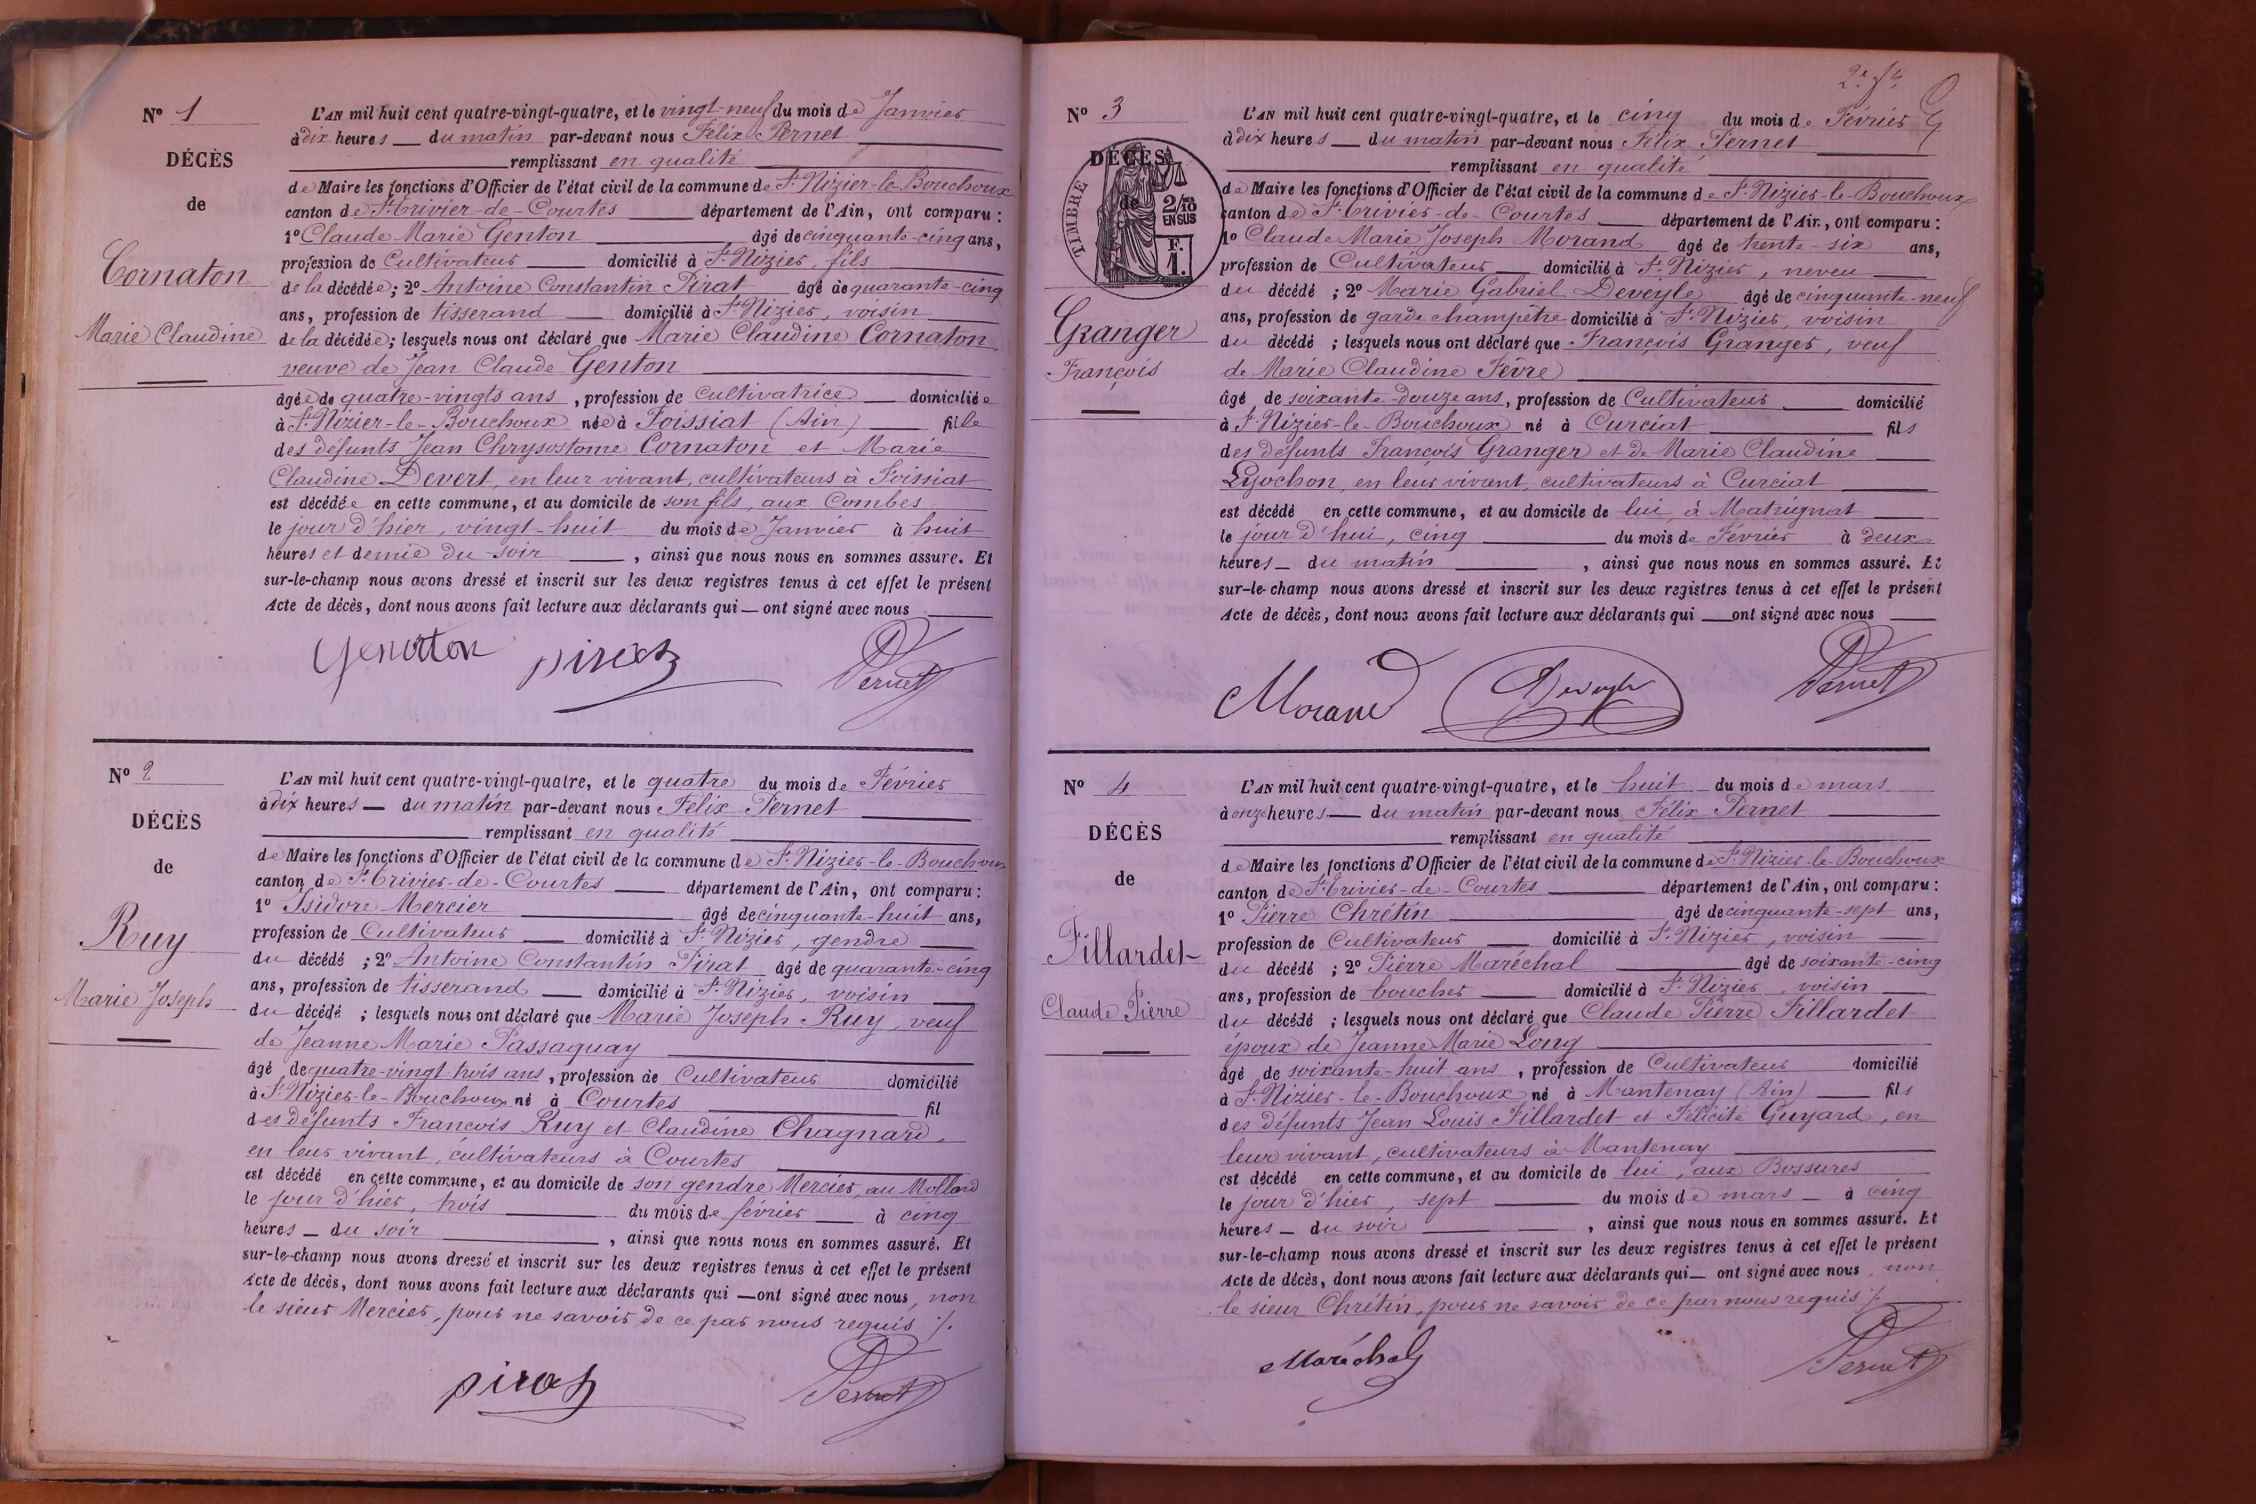 N° 1
DÉCÈS
de
Cornaton
Marie Claudine
L'AN mil huit cent quatre-vingt-quatre, et le vingt-neuf du mois de Janvier
à dix heures — du matin par-devant nous Félix Pernet
remplissant en qualité
de Maire les fonctions d'Officier de l'état civil de la commune de St Nizier-le-Bouchoux
canton de St Trivier-de-Courtes — département de l'Ain, ont comparu :
1° Claude Marie Genton — âgé de cinquante-cinq ans,
profession de Cultivateur — domicilié à St Nizier, fils
de la décédée ; 2° Antoine Constantin Pirat âgé de quarante-cinq
ans, profession de tisserand — domicilié à St Nizier, voisin
de la décédée ; lesquels nous ont déclaré que Marie Claudine Cornaton
veuve de Jean Claude Genton
âgée de quatre-vingts ans, profession de cultivatrice — domiciliée
à St Nizier-le-Bouchoux née à Foissiat (Ain) — fille
des défunts Jean Chrysostome Cornaton et Marie
Claudine Devert, en leur vivant, cultivateurs à Foissiat
est décédée en cette commune, et au domicile de son fils, aux Combes
le jour d'hier, vingt-huit du mois de Janvier à huit
heures et demie du soir —, ainsi que nous nous en sommes assuré. Et
sur-le-champ nous avons dressé et inscrit sur les deux registres tenus à cet effet le présent
Acte de décès, dont nous avons fait lecture aux déclarants qui — ont signé avec nous
Genton pirat Pernet
N° 2
DÉCÈS
de
Ruy
Marie Joseph
L'AN mil huit cent quatre-vingt-quatre, et le quatre du mois de Février
à dix heures — du matin par-devant nous Félix Pernet
remplissant en qualité
de Maire les fonctions d'Officier de l'état civil de la commune de St Nizier-le-Bouchoux
canton de St Trivier-de-Courtes — département de l'Ain, ont comparu :
1° Isidore Mercier — âgé de cinquante-huit ans,
profession de Cultivateur — domicilié à St Nizier, gendre
du décédé ; 2° Antoine Constantin Pirat âgé de quarante-cinq
ans, profession de tisserand — domicilié à St Nizier, voisin
du décédé ; lesquels nous ont déclaré que Marie Joseph Ruy, veuf
de Jeanne Marie Passaquay
âgé de quatre-vingt trois ans, profession de Cultivateur domicilié
à St Nizier-le-Bouchoux né à Courtes — fil
des défunts François Ruy et Claudine Chagnard,
en leur vivant, cultivateurs à Courtes
est décédé en cette commune, et au domicile de son gendre Mercier, au Mollard
le jour d'hier, trois — du mois de février — à cinq
heures — du soir —, ainsi que nous nous en sommes assuré. Et
sur-le-champ nous avons dressé et inscrit sur les deux registres tenus à cet effet le présent
Acte de décès, dont nous avons fait lecture aux déclarants qui — ont signé avec nous, non
le sieur Mercier, pour ne savoir de ce par nous requis ./.
pirat Pernet
N° 3
DÉCÈS
de
TIMBRE
2/10
EN SUS
F.
1.
Granger
François
L'AN mil huit cent quatre-vingt-quatre, et le cinq du mois de Février
à dix heures — du matin par-devant nous Félix Pernet
remplissant en qualité
de Maire les fonctions d'Officier de l'état civil de la commune de St Nizier-le-Bouchoux
canton de St Trivier-de-Courtes — département de l'Ain, ont comparu :
1° Claude Marie Joseph Morand âgé de trente-six ans,
profession de Cultivateur — domicilié à St Nizier, neveu
du décédé ; 2° Marie Gabriel Deveyle âgé de cinquante-neuf
ans, profession de garde champêtre domicilié à St Nizier, voisin
du décédé ; lesquels nous ont déclaré que François Granger, veuf
de Marie Claudine Fèvre
âgé de soixante-douze ans, profession de Cultivateur — domicilié
à St Nizier-le-Bouchoux né à Curciat — fils
des défunts François Granger et de Marie Claudine
Lyochon, en leur vivant, cultivateurs à Curciat
est décédé en cette commune, et au domicile de lui, à Matrignat
le jour d'hui, cinq — du mois de Février à deux
heures — du matin —, ainsi que nous nous en sommes assuré. Et
sur-le-champ nous avons dressé et inscrit sur les deux registres tenus à cet effet le présent
Acte de décès, dont nous avons fait lecture aux déclarants qui — ont signé avec nous
Morand Deveyle Pernet
N° 4
DÉCÈS
de
Fillardet
Claude Pierre
L'AN mil huit cent quatre-vingt-quatre, et le huit du mois de mars
à onze heures — du matin par-devant nous Félix Pernet
remplissant en qualité
de Maire les fonctions d'Officier de l'état civil de la commune de St Nizier-le-Bouchoux
canton de St Trivier-de-Courtes — département de l'Ain, ont comparu :
1° Pierre Chrétin — âgé de cinquante-sept ans,
profession de Cultivateur — domicilié à St Nizier, voisin
du décédé ; 2° Pierre Maréchal — âgé de soixante-cinq
ans, profession de boucher — domicilié à St Nizier, voisin
du décédé ; lesquels nous ont déclaré que Claude Pierre Fillardet
époux de Jeanne Marie Long
âgé de soixante-huit ans, profession de Cultivateur domicilié
à St Nizier-le-Bouchoux né à Mantenay (Ain) — fils
des défunts Jean Louis Fillardet et Félicité Guyard, en
leur vivant, cultivateurs à Mantenay
est décédé en cette commune, et au domicile de lui, aux Bossures
le jour d'hier, sept — du mois de mars — à cinq
heures — du soir —, ainsi que nous nous en sommes assuré. Et
sur-le-champ nous avons dressé et inscrit sur les deux registres tenus à cet effet le présent
Acte de décès, dont nous avons fait lecture aux déclarants qui — ont signé avec nous, non
le sieur Chrétin, pour ne savoir de ce par nous requis ./.
Maréchal Pernet